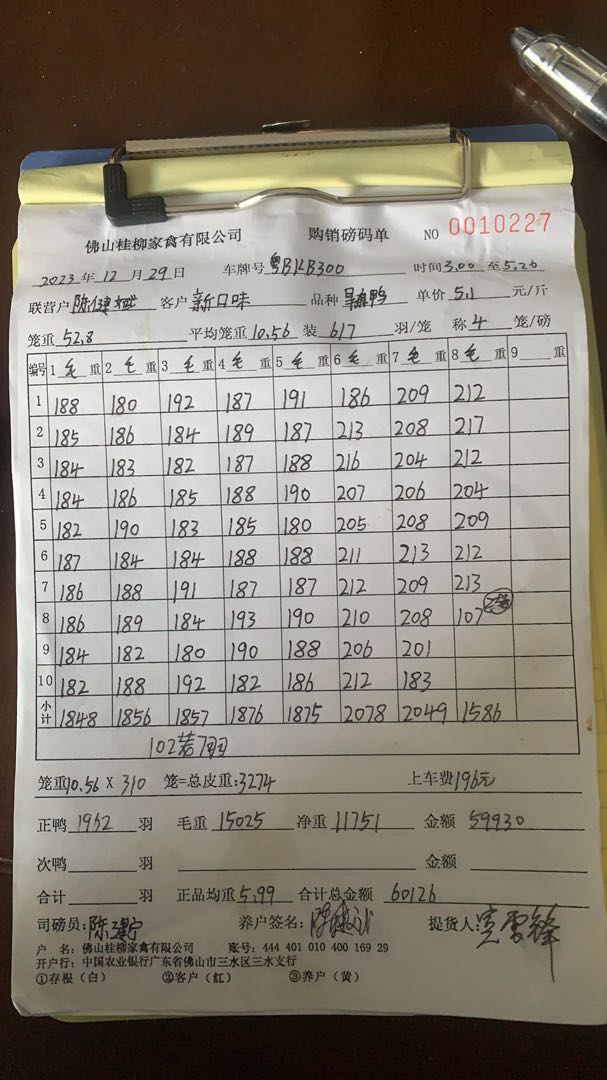 佛山桂柳家禽有限公司 购销磅码单 NO 0010227
2023年12月29日 车牌号 粤BKB300 时间3.00至5.20
联营户 陈健 客户 新口味 品种 鸭 单价 5.1 元/斤
笼重 52.8 平均笼重 10.56 装 6.17 羽/笼 称 4 笼/磅
编号 1 毛 重 2 毛 重 3 毛 重 4 毛 重 5 毛 重 6 毛 重 7 毛 重 8 毛 重 9 重
1 188 180 192 187 191 186 209 212
2 185 186 184 189 187 213 208 217
3 184 183 182 187 188 216 204 212
4 184 186 185 188 190 207 206 204
5 182 190 183 185 180 205 208 209
6 187 184 184 188 188 211 213 212
7 186 188 191 187 187 212 209 213
8 186 189 184 193 190 210 208 107
9 184 182 180 190 188 206 201
10 182 188 192 182 186 212 183
小计 1848 1856 1857 1876 1875 2078 2049 1586
笼重 10.56 X 310 笼=总皮重: 3274 上车费 196元
正鸭 1962 羽 毛重 15025 净重 11751 金额 59930
次鸭 羽 金额
合计 羽 正品均重 5.99 合计总金额 60126
司磅员: 陈建宁 养户签名: 提货人:
户 名: 佛山桂柳家禽有限公司 账号: 444 401 010 400 169 29
开户行: 中国农业银行广东省佛山市三水区三水支行
①存根(白) ②客户(红) ③养户(黄)